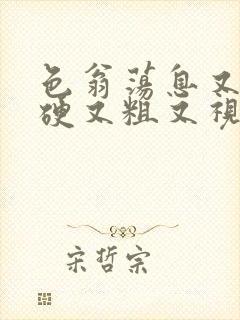 色翁荡息又
硬又粗又视
宋哲宗